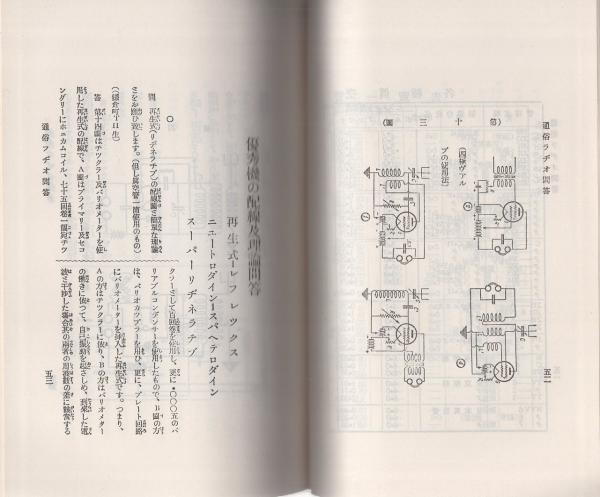 通俗ラヂオ問答
五二
(第十三圖)
(四極ヴアル
ブの使用法)
優秀機の配線及理論問答
再生式―レフレックス
ニユートロダイン―スパヘテロダイン
スーパーリヂネラチブ
○
問 再生式(リヂネラチブ)の配線圖と簡單な理論
とをお願ひ致します。(但し眞空管一箇使用のもの)
(鎌倉町TH生)
答 第十四圖はチツクラー及バリオメーターを使
用した再生式の配線で、A圖はプライマリー及セコ
ングリーにホニカムコイル、七十五回巻一個宛チツ
クラーとして百回巻を使用し、更に・〇〇〇五のバ
リアブルコンデンサーを使用したもので、B圖の方
は、バリオカツプラーを用ひ、更に、プレート回路
にバリオメーターを挿入した再生式です。つまり、
Aの方はチツクラーに依り、Bの方はバリオメーター
の働きに依つて、自己振動を起さしめ、到來した電
波と干渉した場合其の兩者の周波數の差に該當する
通俗ラヂオ問答
五三